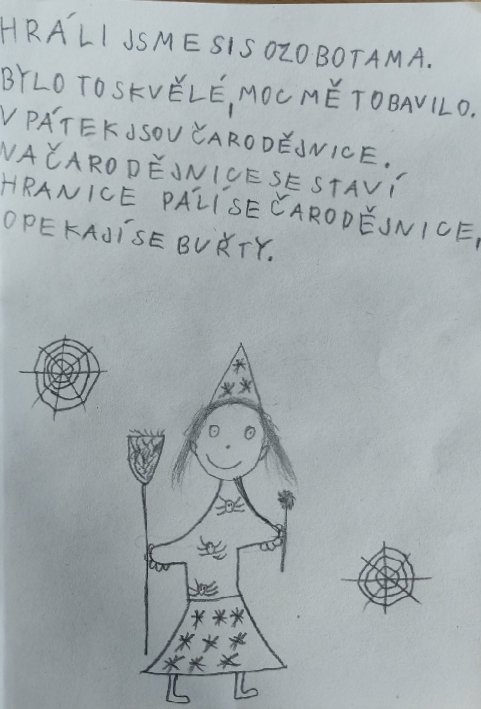 HRÁLI JSME SI S OZOBOTAMA.
BYLO TO SKVĚLÉ, MOC MĚ TO BAVILO.
V PÁTEK JSOU ČARODĚJNICE.
NA ČARODĚJNICE SE STAVÍ
HRANICE PÁLÍ SE ČARODĚJNICE,
OPEKAJÍ SE BUŘTY.